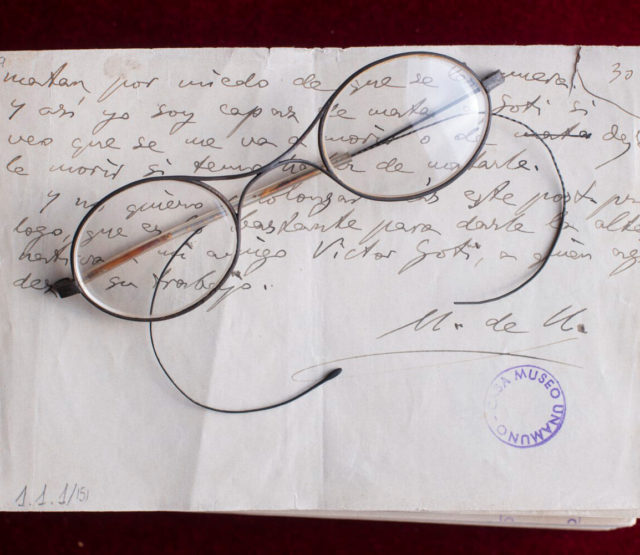 matan por miedo de que se muera 30
Y así yo soy capaz de matar a Goti si
veo que se me va a morir o de mata dej
le morir si temo de matarle.
Y no quiero prolongar este post-pró
logo que es bastante para darle la alter
nativa mi amigo Victor Goti, a quien agra
su trabajo.
M. de U.
CASA MUSEO UNAMUNO
1.1.1/(5)